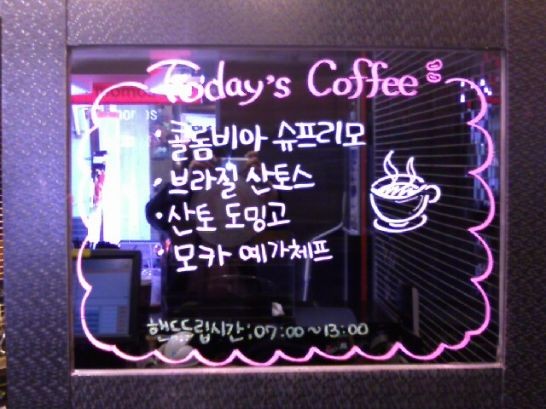 Today's Coffee
· 콜롬비아 슈프리모
· 브라질 산토스
· 산토 도밍고
· 모카 예가체프
핸드드립시간 : 07:00~13:00